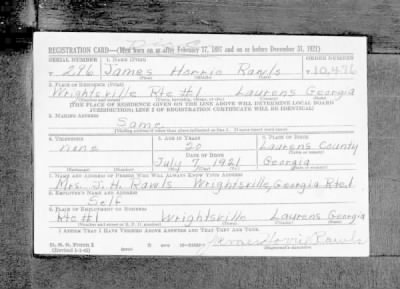 REGISTRATION CARD—(Men born on or after February 17, 1897 and on or before December 31, 1921)
SERIAL NUMBER 1. NAME (Print) ORDER NUMBER
T 296 James Horris Rawls T 10,496
2. PLACE OF RESIDENCE (Print)
Wrightsville Rte #1 Laurens Georgia
[THE PLACE OF RESIDENCE GIVEN ON THE LINE ABOVE WILL DETERMINE LOCAL BOARD
JURISDICTION; LINE 2 OF REGISTRATION CERTIFICATE WILL BE IDENTICAL]
3. MAILING ADDRESS
Same
[Mailing address if other than place indicated on line 2. If same insert word same]
4. TELEPHONE 5. AGE IN YEARS 6. PLACE OF BIRTH
none 20 Laurens County
DATE OF BIRTH
July 7 1921 Georgia
7. NAME AND ADDRESS OF PERSON WHO WILL ALWAYS KNOW YOUR ADDRESS
Mrs. J. H. Rawls Wrightsville, Georgia Rte. 1
8. EMPLOYER'S NAME AND ADDRESS
Self
9. PLACE OF EMPLOYMENT OR BUSINESS
Rte #1 Wrightsville Laurens Georgia
I AFFIRM THAT I HAVE VERIFIED ABOVE ANSWERS AND THAT THEY ARE TRUE.
D. S. S. Form 1
(Revised 1-1-42) (over) James Horris Rawls